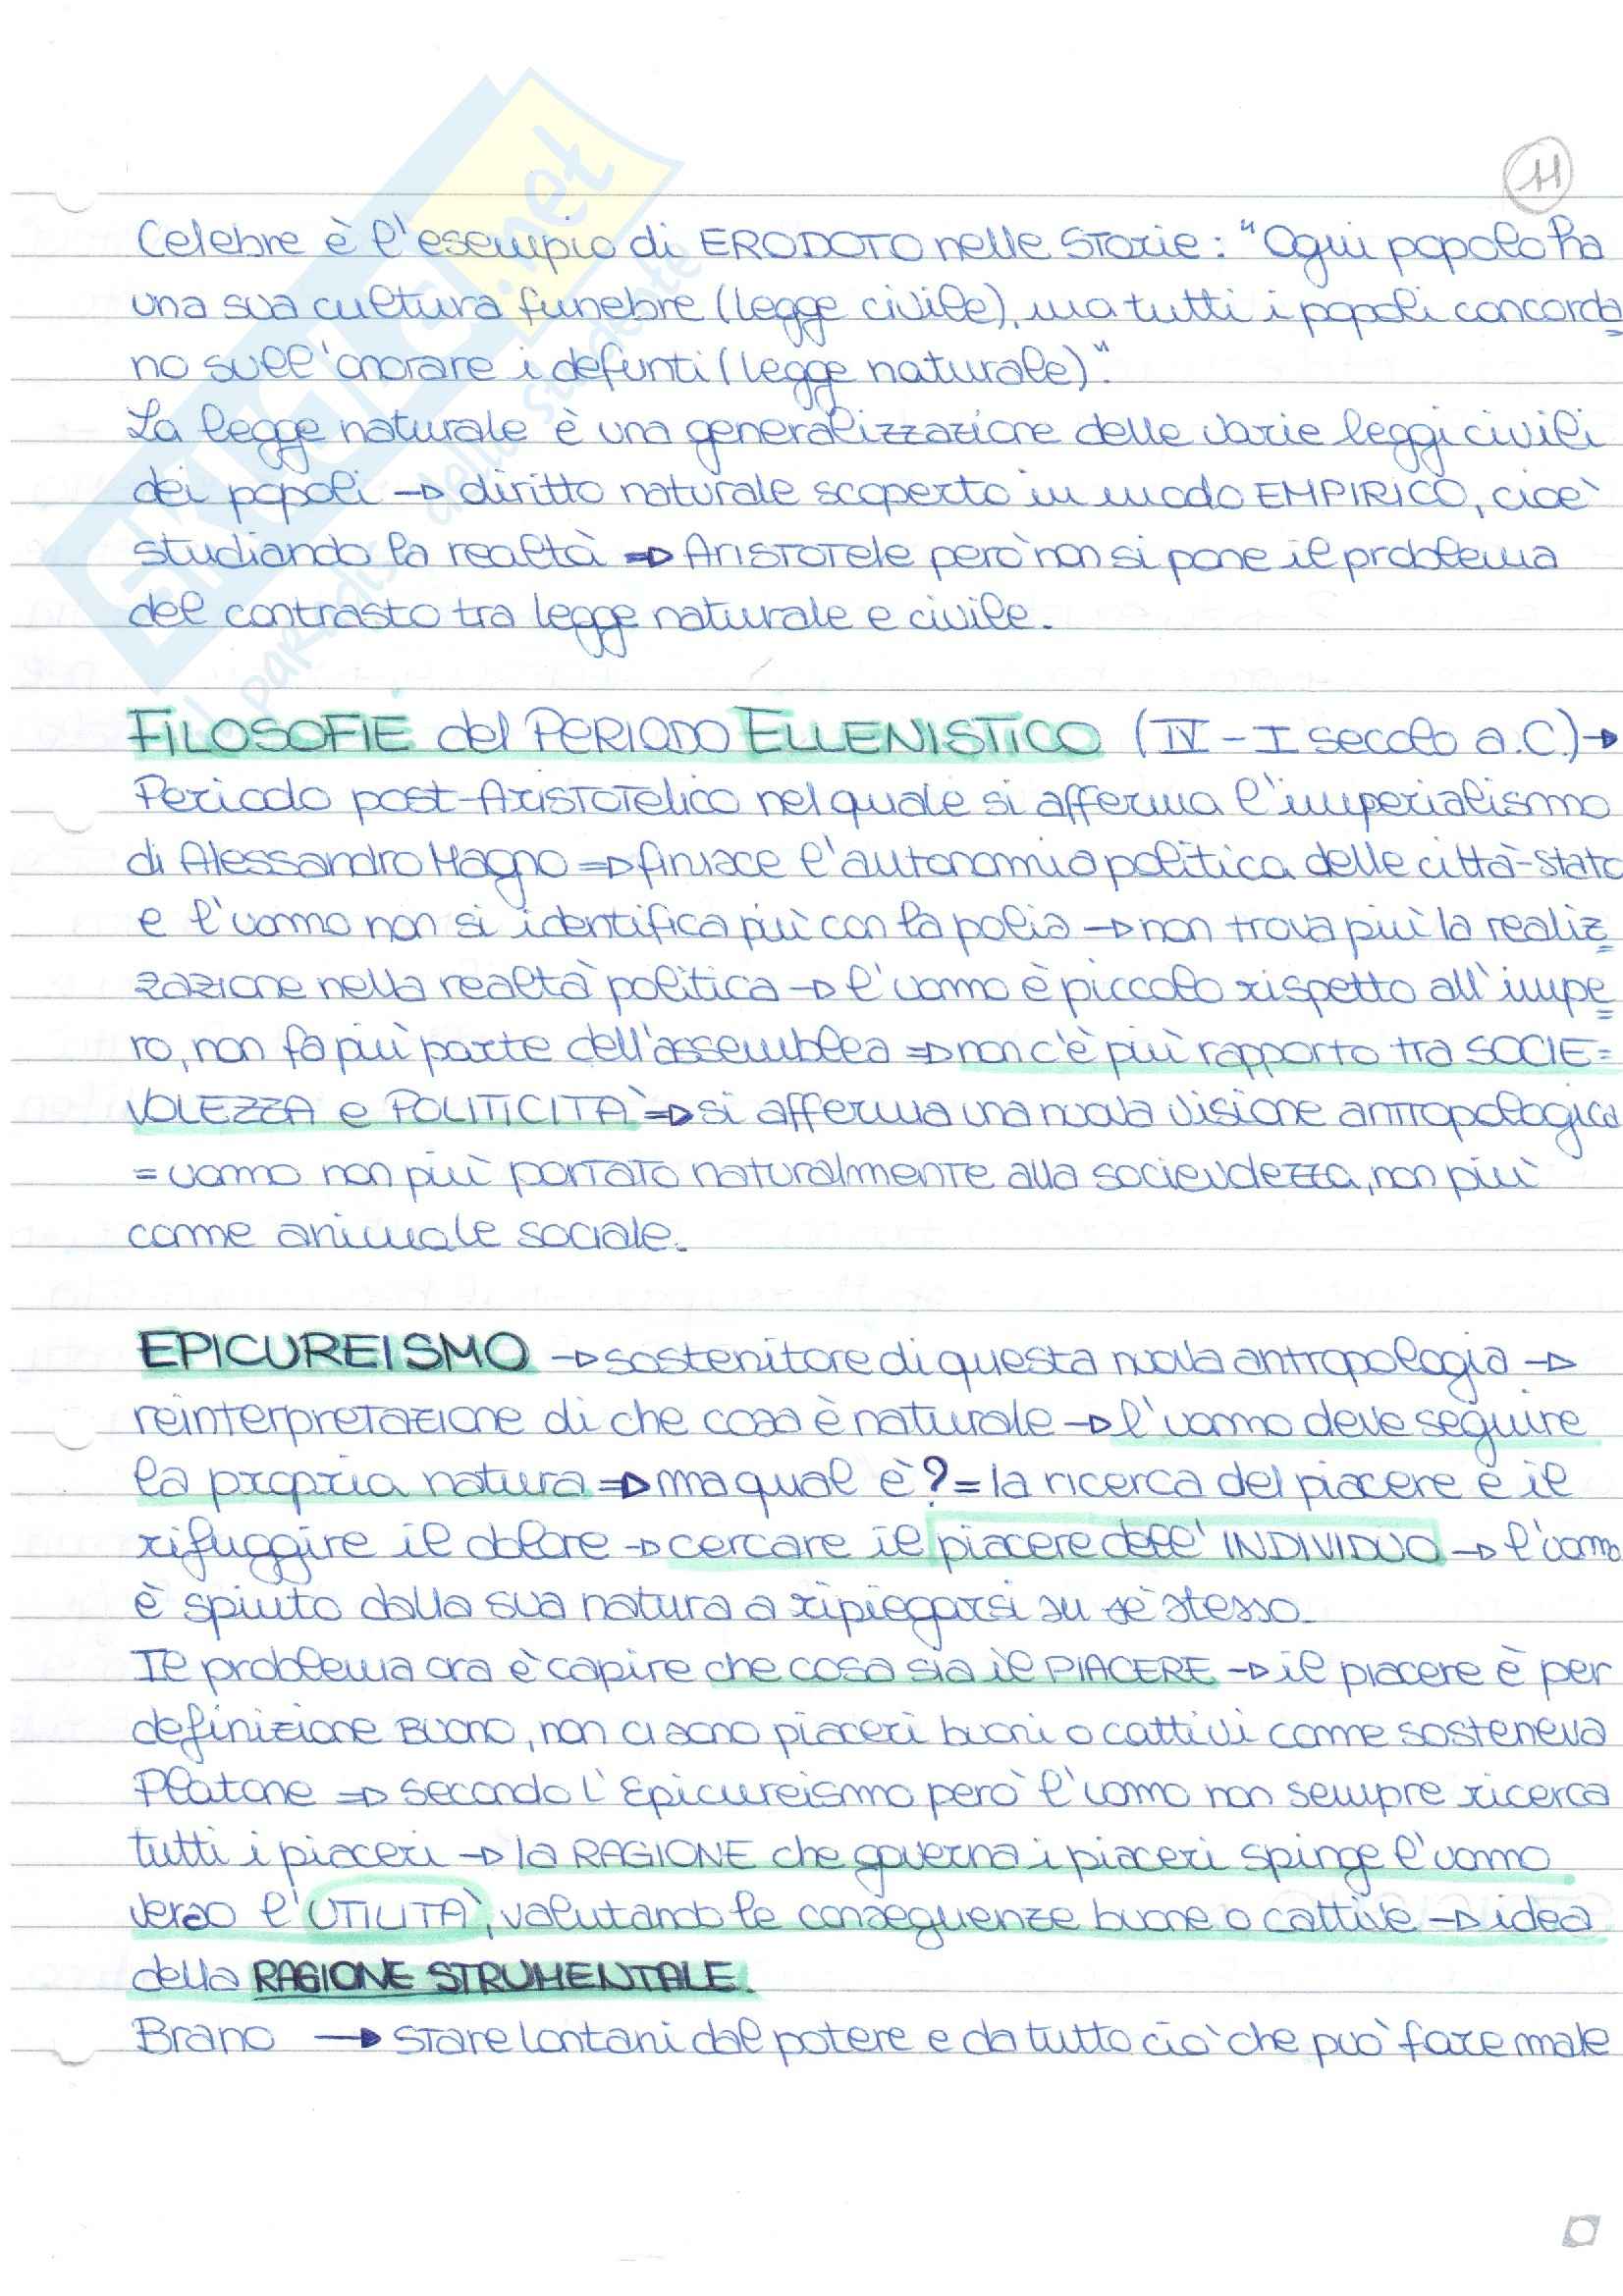 11
Celebre è l'esempio di ERODOTO nelle Storie: "Ogni popolo ha
una sua cultura funebre (legge civile), ma tutti i popoli concorda=
no sull'onorare i defunti (legge naturale)".
La legge naturale è una generalizzazione delle varie leggi civili
dei popoli → diritto naturale scoperto in modo EMPIRICO, cioè
studiando la realtà ⇒ Aristotele però non si pone il problema
del contrasto tra legge naturale e civile.
FILOSOFIE del PERIODO ELLENISTICO (IV - I secolo a.C.) →
Periodo post-Aristotelico nel quale si afferma l'imperialismo
di Alessandro Magno ⇒ finisce l'autonomia politica delle città-stato
e l'uomo non si identifica più con la polis → non trova più la realiz=
zazione nella realtà politica → l'uomo è piccolo rispetto all'impe=
ro, non fa più parte dell'assemblea ⇒ non c'è più rapporto tra SOCIE=
VOLEZZA e POLITICITÀ ⇒ si afferma una nuova visione antropologica
= uomo non più portato naturalmente alla socievolezza, non più
come animale sociale.
EPICUREISMO → sostenitore di questa nuova antropologia →
reinterpretazione di che cosa è naturale → l'uomo deve seguire
la propria natura ⇒ ma qual è? = la ricerca del piacere e il
rifuggire il dolore → cercare il piacere dell'INDIVIDUO → l'uomo
è spinto dalla sua natura a ripiegarsi su sé stesso.
Il problema ora è capire che cosa sia il PIACERE → il piacere è per
definizione BUONO, non ci sono piaceri buoni o cattivi come sosteneva
Platone ⇒ secondo l'Epicureismo però l'uomo non sempre ricerca
tutti i piaceri → la RAGIONE che governa i piaceri spinge l'uomo
verso l'UTILITÀ, valutando le conseguenze buone o cattive → idea
della RAGIONE STRUMENTALE.
Brano → stare lontani dal potere e da tutto ciò che può fare male